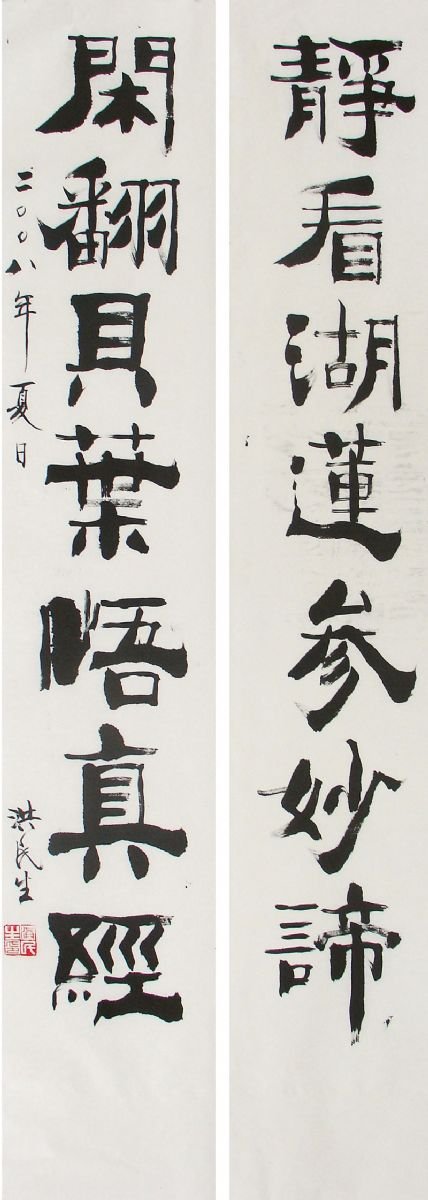 靜看湖蓮参妙諦
閑翻貝葉悟真經
二〇〇八年夏日
洪民生